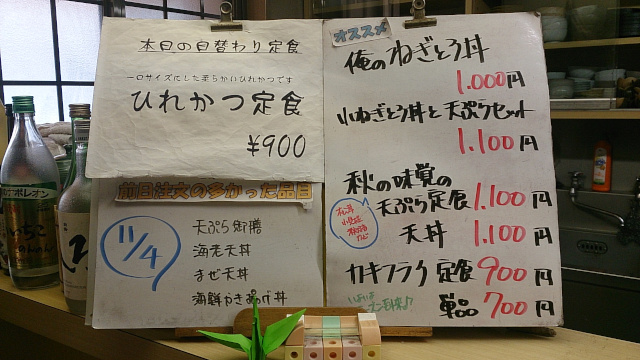 本日の日替わり定食
一口サイズにした柔らかいひれかつです
ひれかつ定食
¥900
前日注文の多かった品目
11/4
天ぷら御膳
海老天丼
まぜ天丼
海鮮かきあげ丼
オススメ
俺のねぎとろ丼
1.000円
小ねぎとろ丼と天ぷらセット
1.100円
秋の味覚の
天ぷら定食 1.100円
松茸
など
天丼 1.100円
カキフライ定食 900円
単品 700円